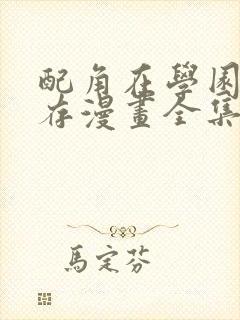 配角在學園
存漫畫全集
馬定芬